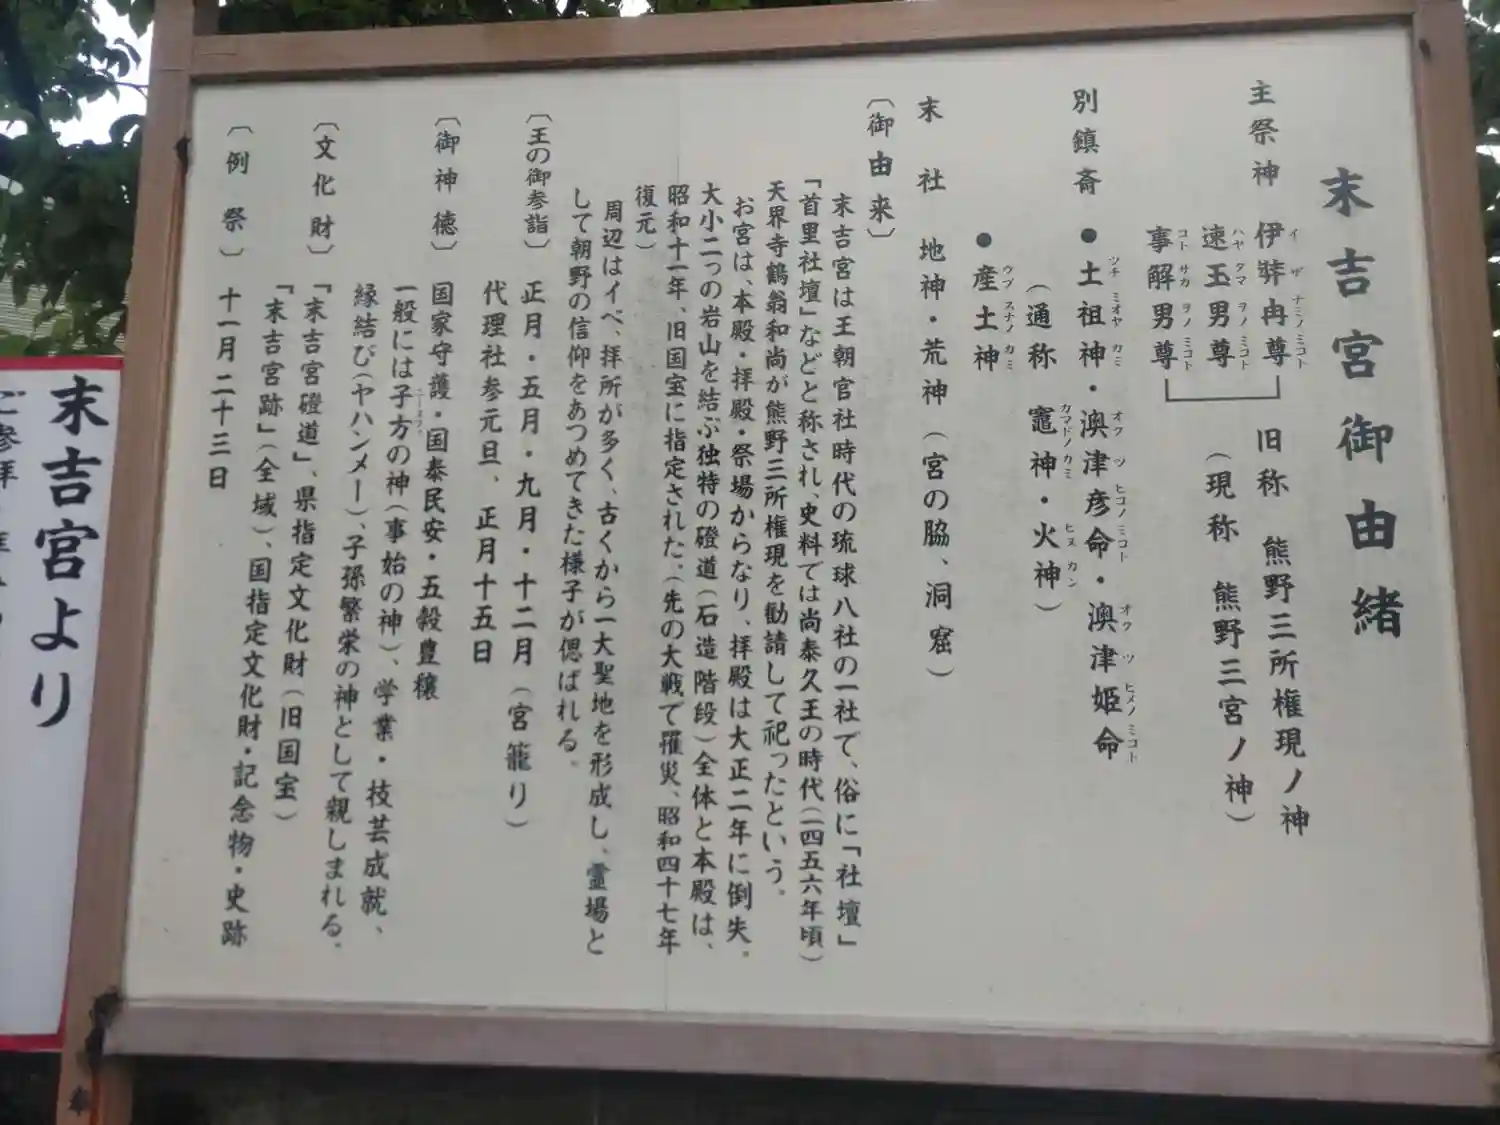 末吉宮御由緒
主祭神 伊弉冉尊 旧称 熊野三所権現ノ神
イザナミノミコト
速玉男尊 (現称 熊野三宮ノ神)
ハヤタマヲノミコト
事解男尊
コトサカヲノミコト
別鎮斎 ●土祖神・澳津彦命・澳津姫命
ツチミオヤカミ オフツヒコノミコト オフツヒメノミコト
(通称 竈神・火神)
カマドノカミ ヒヌカン
●産土神
ウブスナノカミ
末社 地神・荒神(宮の脇、洞窟)
〔御由来〕
末吉宮は王朝官社時代の琉球八社の一社で、俗に「社壇」
「首里社壇」などと称され、史料では尚泰久王の時代(一四五六年頃)
天界寺鶴翁和尚が熊野三所権現を勧請して祀ったという。
お宮は、本殿・拝殿・祭場からなり、拝殿は大正二年に倒失。
大小二つの岩山を結ぶ独特の磴道(石造階段)全体と本殿は、
昭和十一年、旧国宝に指定された。(先の大戦で罹災、昭和四十七年
復元)
周辺はイベ、拝所が多く、古くから一大聖地を形成し、霊場と
して朝野の信仰をあつめてきた様子が偲ばれる。
〔王の御参詣〕 正月・五月・九月・十二月(宮籠り)
代理社参元旦、正月十五日
〔御神徳〕 国家守護・国泰民安・五穀豊穣
一般には子方の神(事始の神)、学業・技芸成就、
縁結び(ヤハンメー)、子孫繁栄の神として親しまれる。
〔文化財〕 「末吉宮磴道」、県指定文化財(旧国宝)
「末吉宮跡」(全域)、国指定文化財・記念物・史跡
〔例祭〕 十一月二十三日
末吉宮より
ご参拝
奉